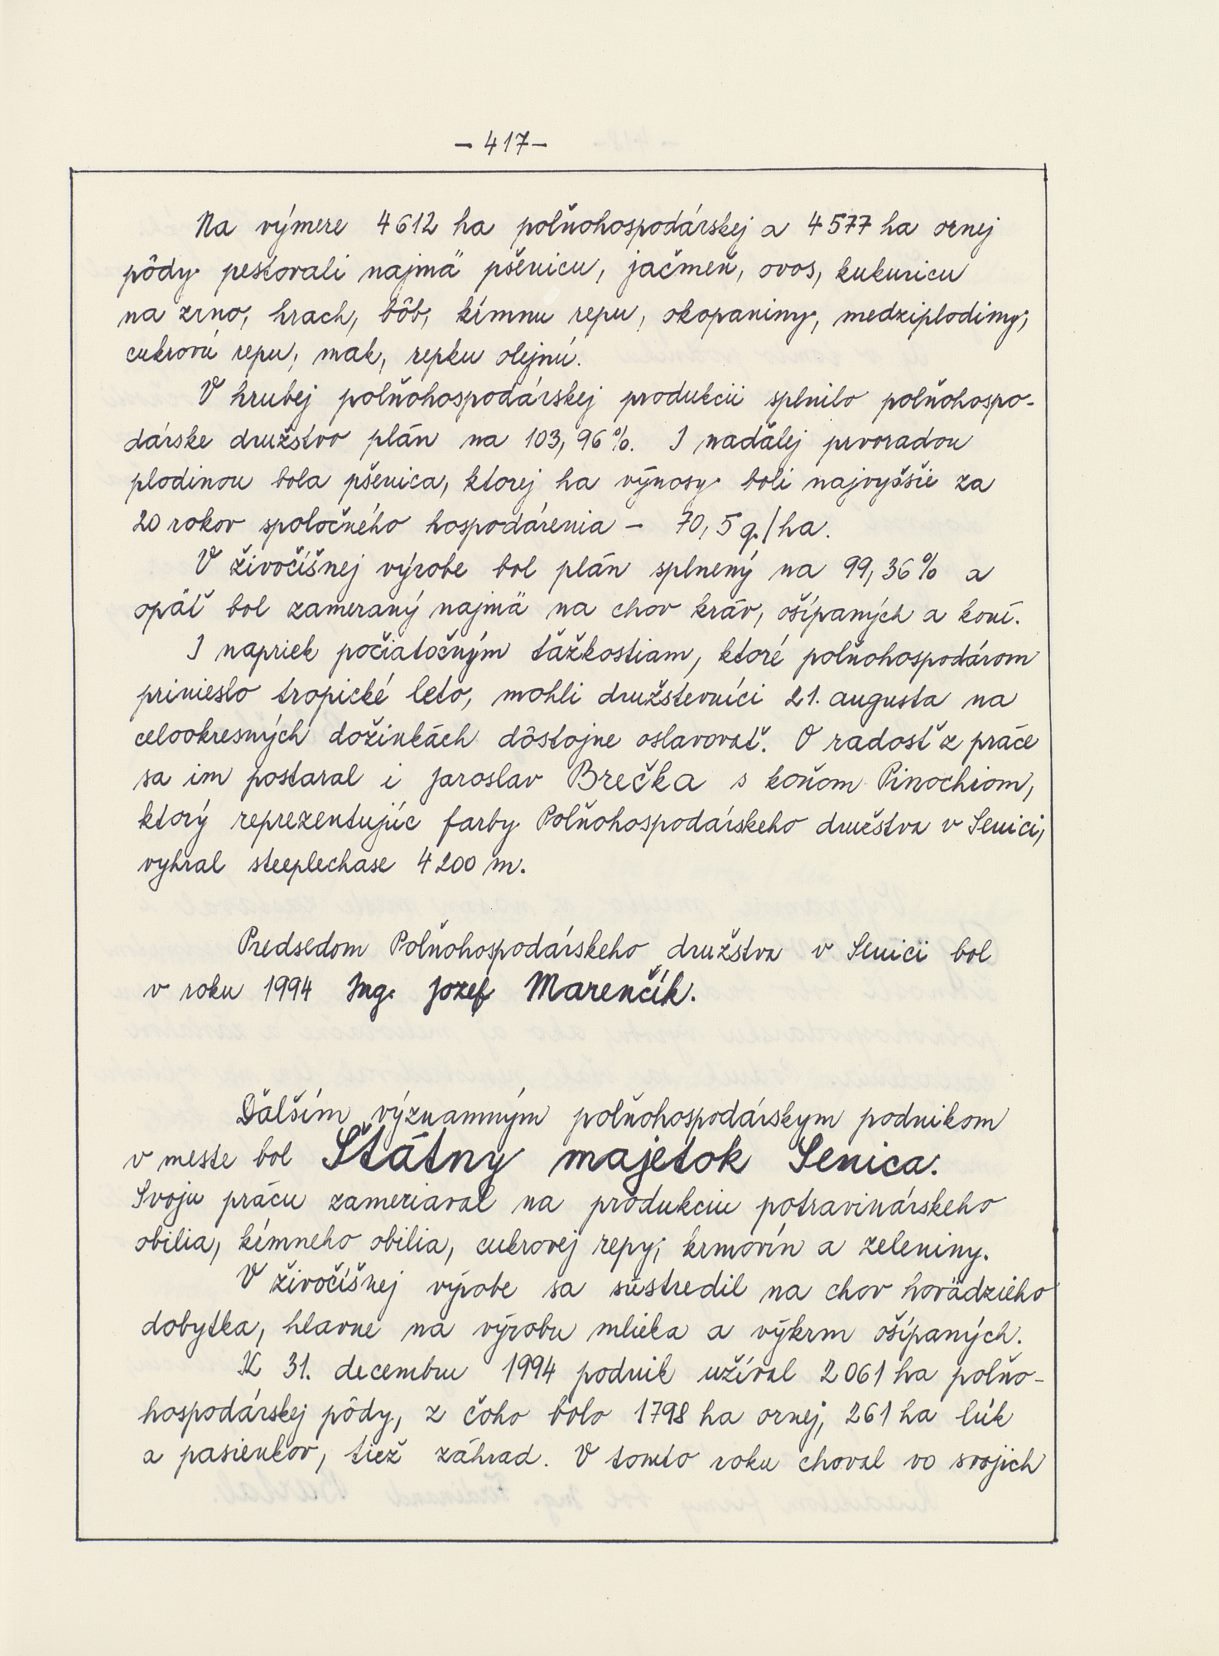 - 417 -
Na výmere 4612 ha poľnohospodárskej a 4577 ha ornej
pôdy pestovali najmä pšenicu, jačmeň, ovos, kukuricu
na zrno, hrach, bôb, kŕmnu repu, okopaniny, medziplodiny,
cukrovú repu, mak, repku olejnú.
V hrubej poľnohospodárskej produkcii splnilo poľnohospo-
dárske družstvo plán na 103,96%. I naďalej prvoradou
plodinou bola pšenica, ktorej ha výnosy boli najvyššie za
20 rokov spoločného hospodárenia - 70,5 q/ha.
V živočíšnej výrobe bol plán splnený na 99,36% a
opäť bol zameraný najmä na chov kráv, ošípaných a koní.
I napriek počiatočným ťažkostiam, ktoré poľnohospodárom
prinieslo tropické leto, mohli družstevníci 21. augusta na
celookresných dožinkách dôstojne oslavovať. O radosť z práce
sa im postaral i Jaroslav Brečka s koňom Pinochiom,
ktorý reprezentujúc farby Poľnohospodárskeho družstva v Senici,
vyhral steeplechase 4200 m.
Predsedom Poľnohospodárskeho družstva v Senici bol
v roku 1994 Ing. Jozef Marenčík.
Ďalším významným poľnohospodárskym podnikom
v meste bol Štátny majetok Senica.
Svoju prácu zameriaval na produkciu potravinárskeho
obilia, kŕmneho obilia, cukrovej repy, krmovín a zeleniny.
V živočíšnej výrobe sa sústredil na chov hovädzieho
dobytka, hlavne na výrobu mlieka a výkrm ošípaných.
K 31. decembru 1994 podnik užíval 2061 ha poľno-
hospodárskej pôdy, z čoho bolo 1798 ha ornej, 261 ha lúk
a pasienkov, tiež záhrad. V tomto roku choval vo svojich